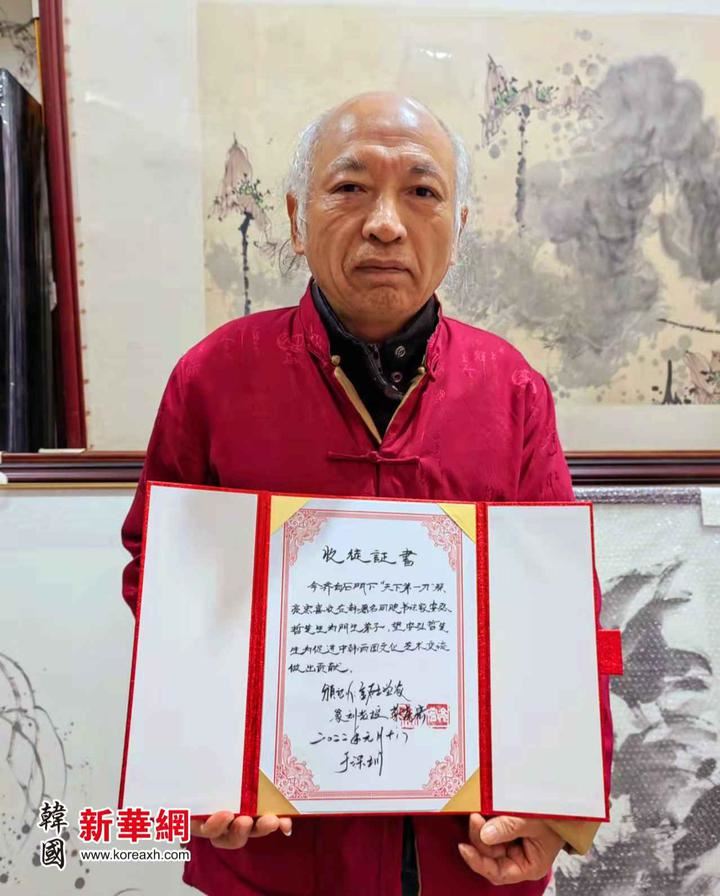 收徒証書
今齐白石門下“天下第一刀”梁
宏喜收在韩著名硬笔书法家李弘
哲先生为門生弟子,望李弘哲先
生为促进中韩两国文化艺术交流
做出贡献。
頒
篆刻
二〇二二年元月十八
于深圳
韓國
新華網
www.koreaxh.com